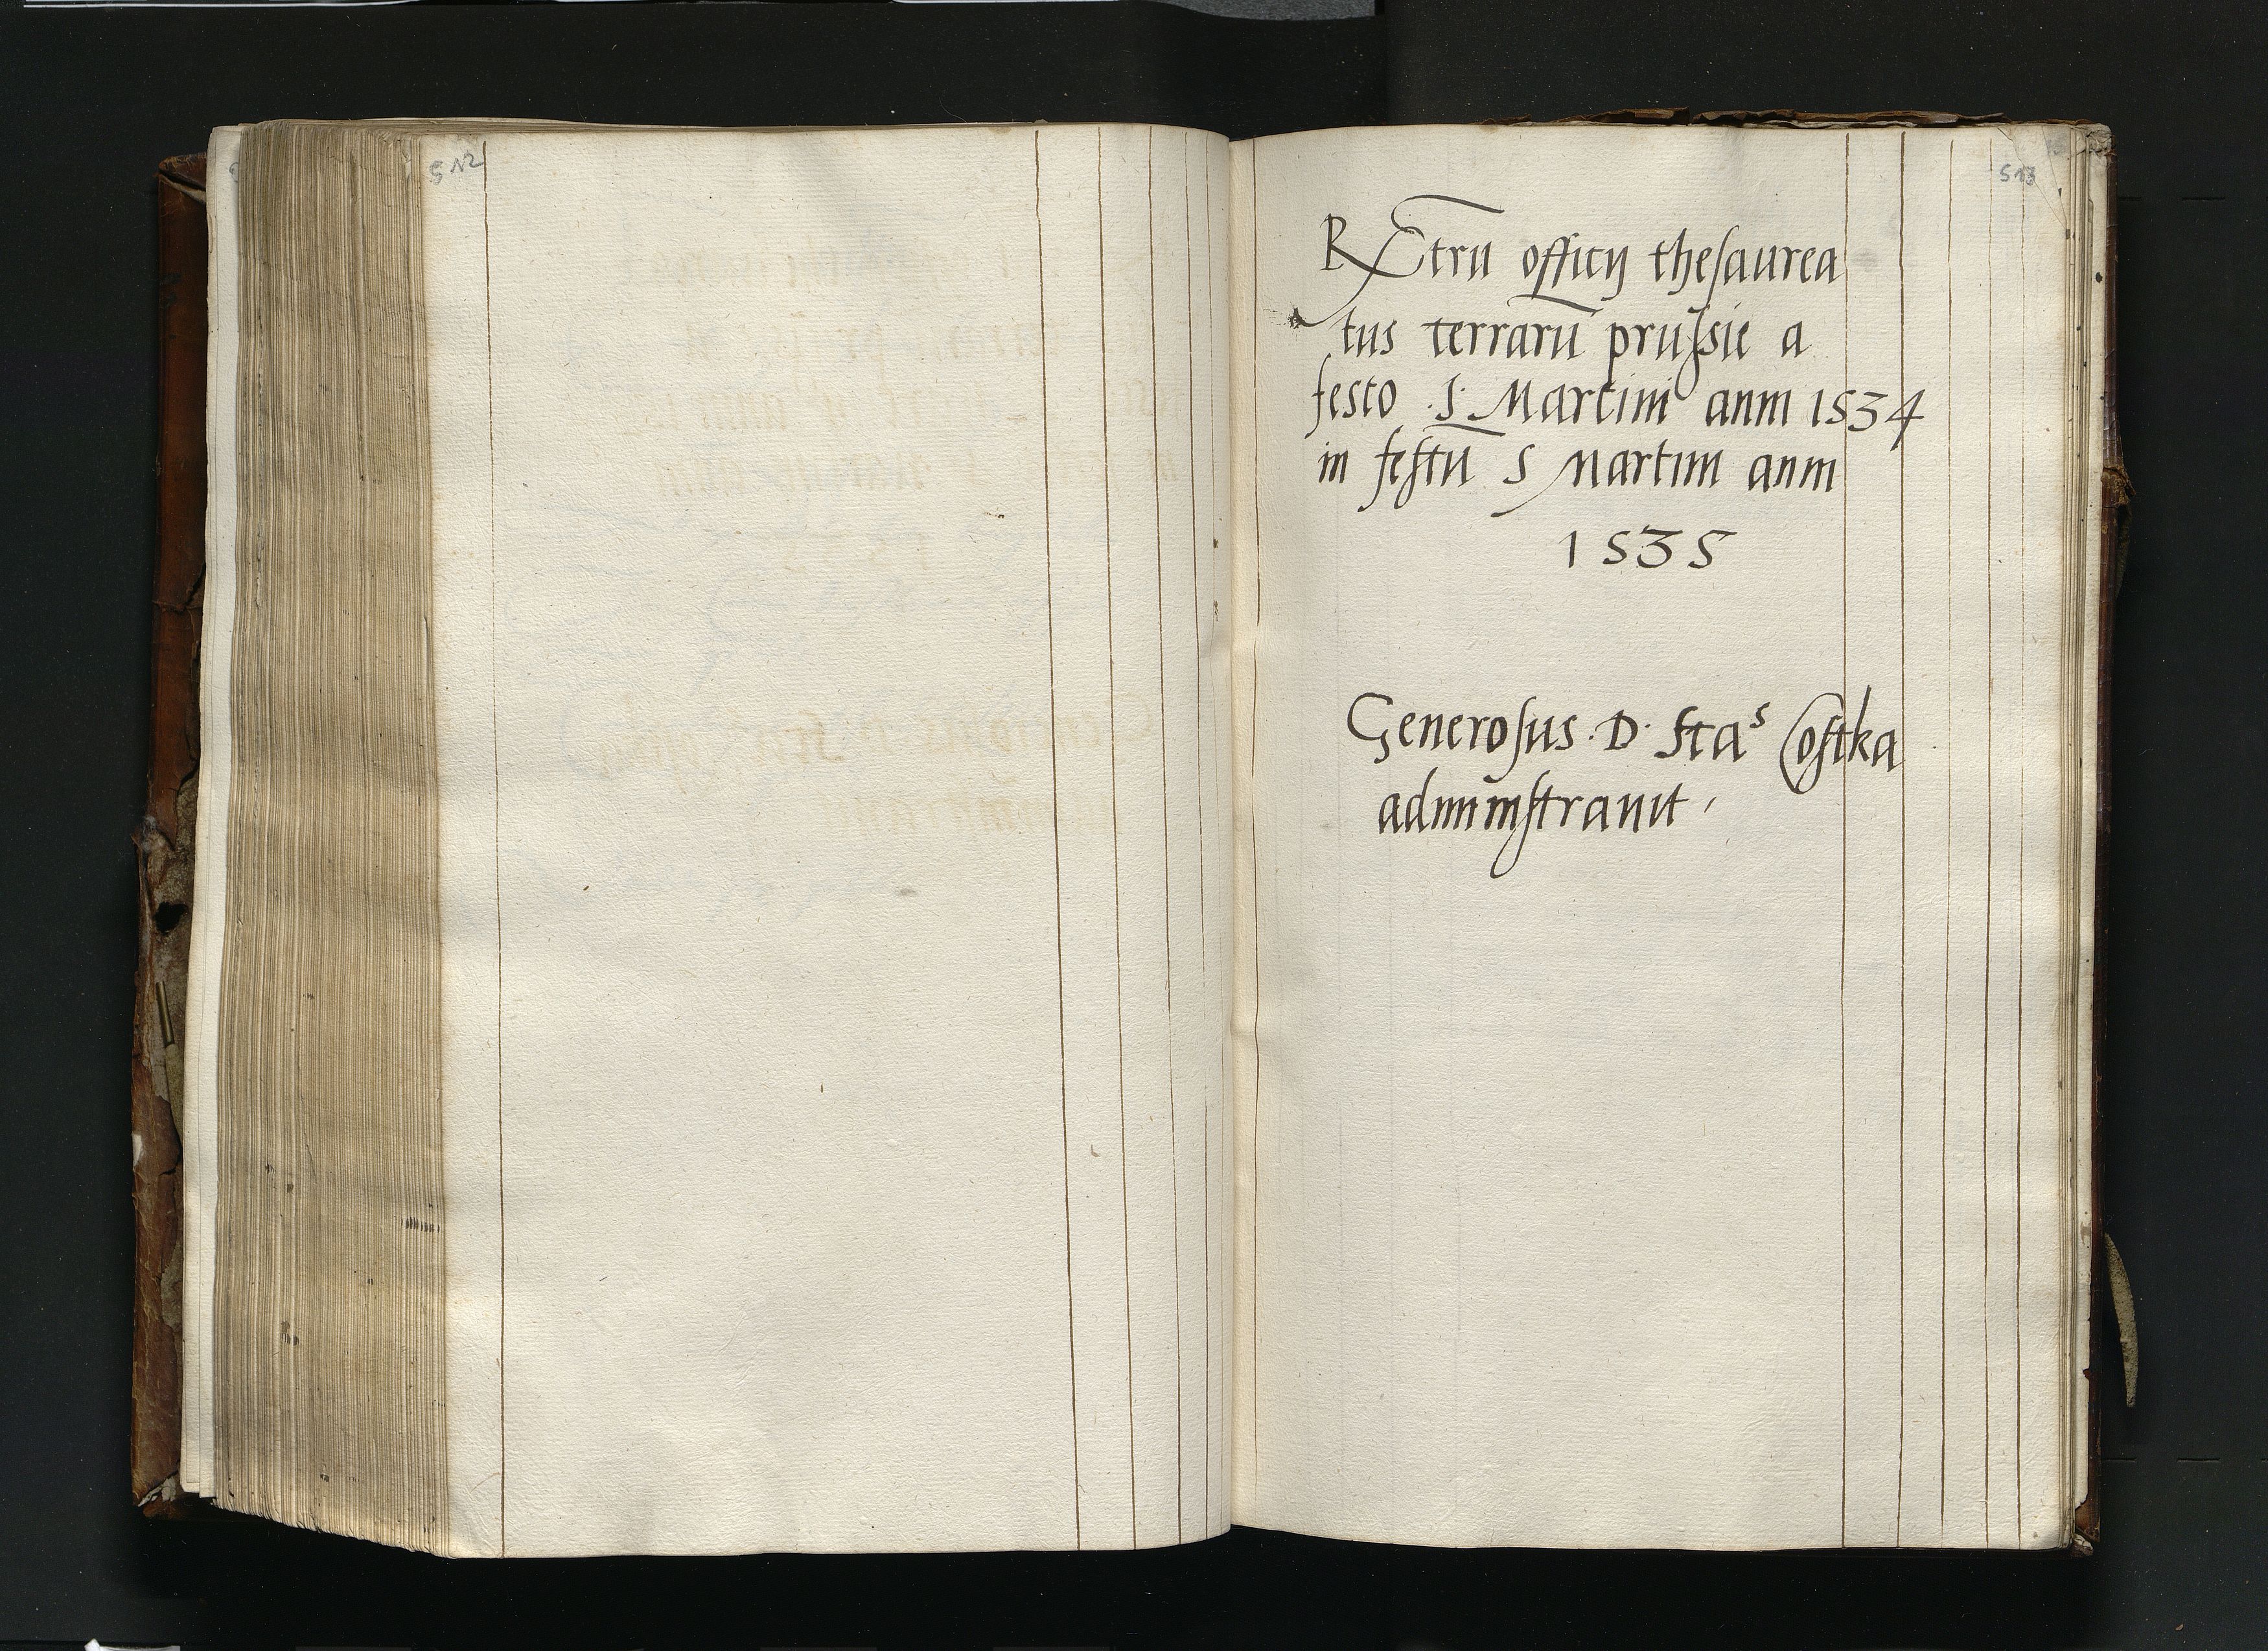 512
513
REtrũ officij thesaurea
tus terrarũ prussie a
festo .S. Martini anni 1534
in festũ S Martini anni
1535
Generosus .D. Stas Costka
administrauit